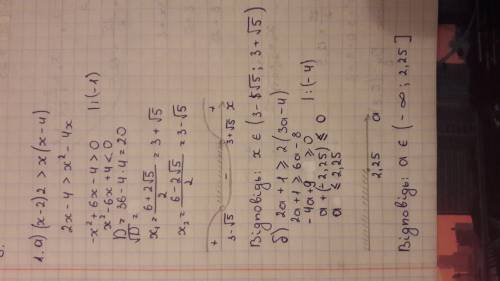 1. а) (x-2)2 > x(x-4)
2x-4 > x²-4x
-x²+6x-4>0 |:(-1)
x²-6x+4<0
D = 36-4·4=20
√D =
x₁ = (6+2√5)/2 = 3+√5
x₂ = (6-2√5)/2 = 3-√5
+ - +
3-√5 3+√5 x
Відповідь: x ∈ (3-√5; 3+√5)
б) 2a+1 ⩾ 2(3a-4)
2a+1 ⩾ 6a-8
-4a+9 ⩾ 0 |:(-4)
a+(-2,25) ⩽ 0
a ⩽ 2,25
2,25 a
Відповідь: a ∈ (-∞; 2,25]